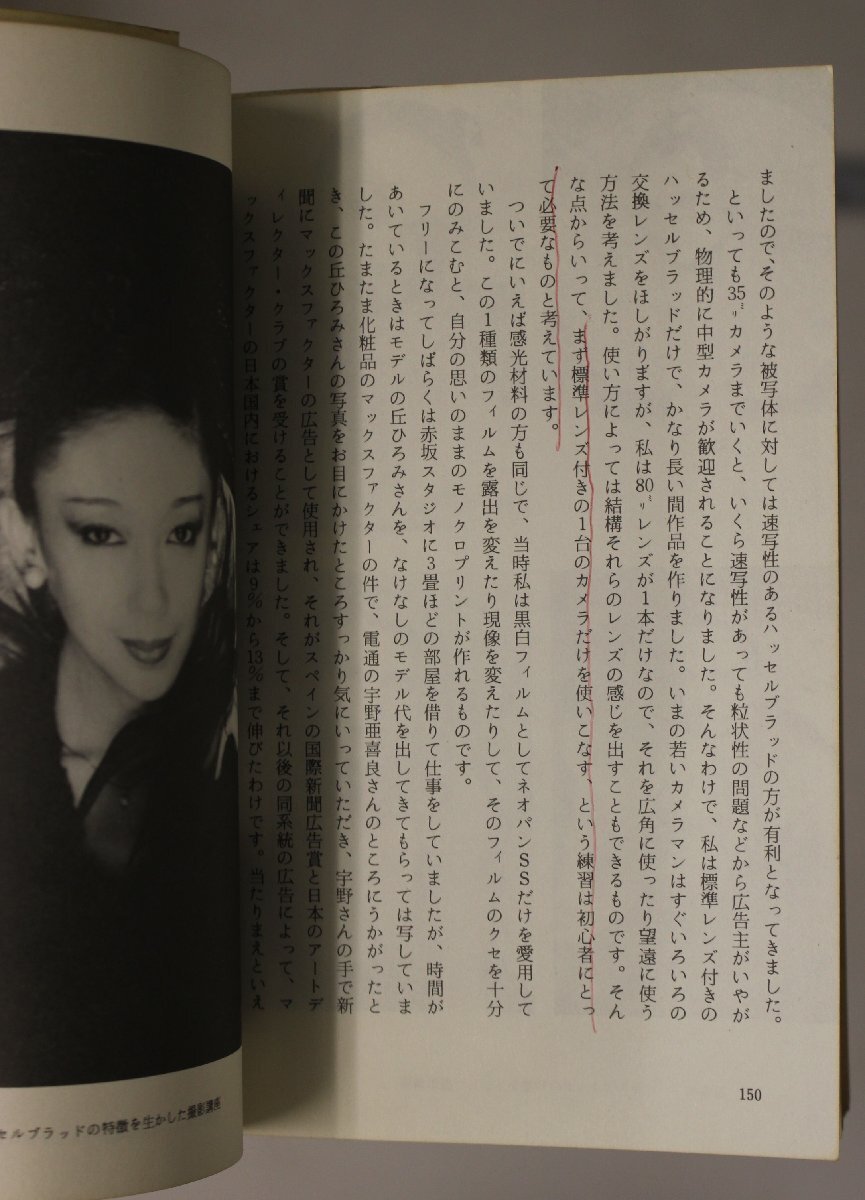 ましたので、そのような被写体に対しては速写性のあるハッセルブラッドの方が有利となってきました。
といっても35㍉カメラまでいくと、いくら速写性があっても粒状性の問題などから広告主がいやが
るため、物理的に中型カメラが歓迎されることになりました。そんなわけで、私は標準レンズ付きの
ハッセルブラッドだけで、かなり長い間作品を作りました。いまの若いカメラマンはすぐいろいろの
交換レンズをほしがりますが、私は80㍉レンズが1本だけなので、それを広角に使ったり望遠に使う
方法を考えました。使い方によっては結構それらのレンズの感じを出すこともできるものです。そん
な点からいって、まず標準レンズ付きの1台のカメラだけを使いこなす、という練習は初心者にとっ
て必要なものと考えています。
ついでにいえば感光材料の方も同じで、当時私は黒白フィルムとしてネオパンSSだけを愛用して
いました。この1種類のフィルムを露出を変えたり現像を変えたりして、そのフィルムのクセを十分
にのみこむと、自分の思いのままのモノクロプリントが作れるものです。
フリーになってしばらくは赤坂スタジオに3畳ほどの部屋を借りて仕事をしていましたが、時間が
あいているときはモデルの丘ひろみさんを、なけなしのモデル代を出してきてもらっては写していま
した。たまたま化粧品のマックスファクターの件で、電通の宇野亜喜良さんのところにうかがったと
き、この丘ひろみさんの写真をお目にかけたところすっかり気にいっていただき、宇野さんの手で新
聞にマックスファクターの広告として使用され、それがスペインの国際新聞広告賞と日本のアートデ
ィレクター・クラブの賞を受けることができました。そして、それ以後の同系統の広告によって、マ
ックスファクターの日本国内におけるシェアは9%から13%まで伸びたわけです。当たりまえといえ
150
セルブラッドの特徴を生かした撮影講座